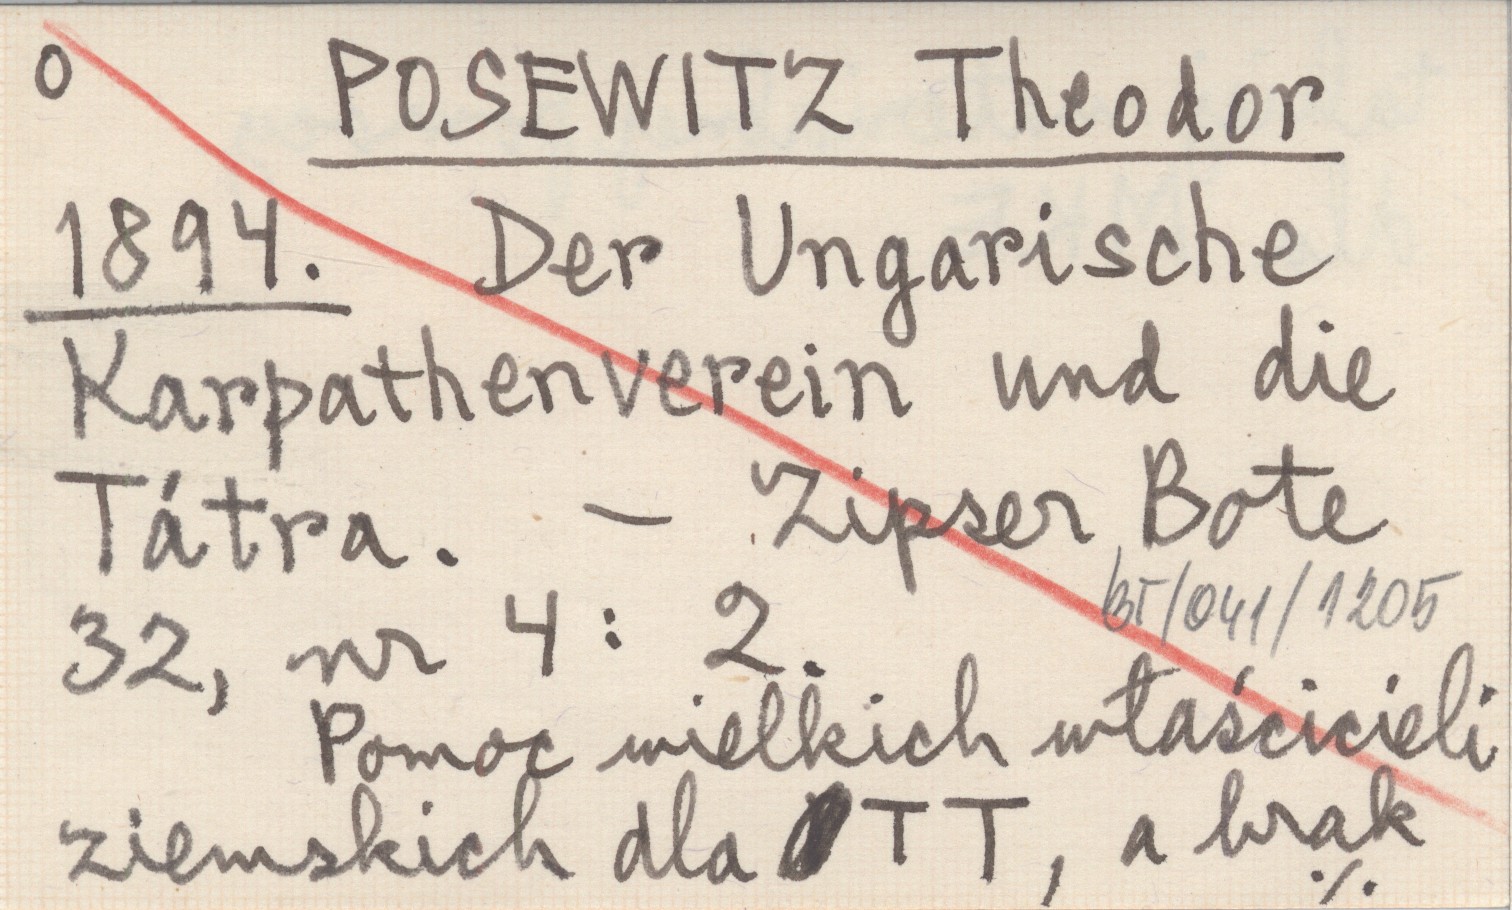 O POSEWITZ Theodor
1894. Der Ungarische
Karpathenverein und die
Tátra. – Zipser Bote
BT/041/1205
32, nr 4 : 2.
Pomoc wielkich właścicieli
ziemskich dla TT, a brak
./.